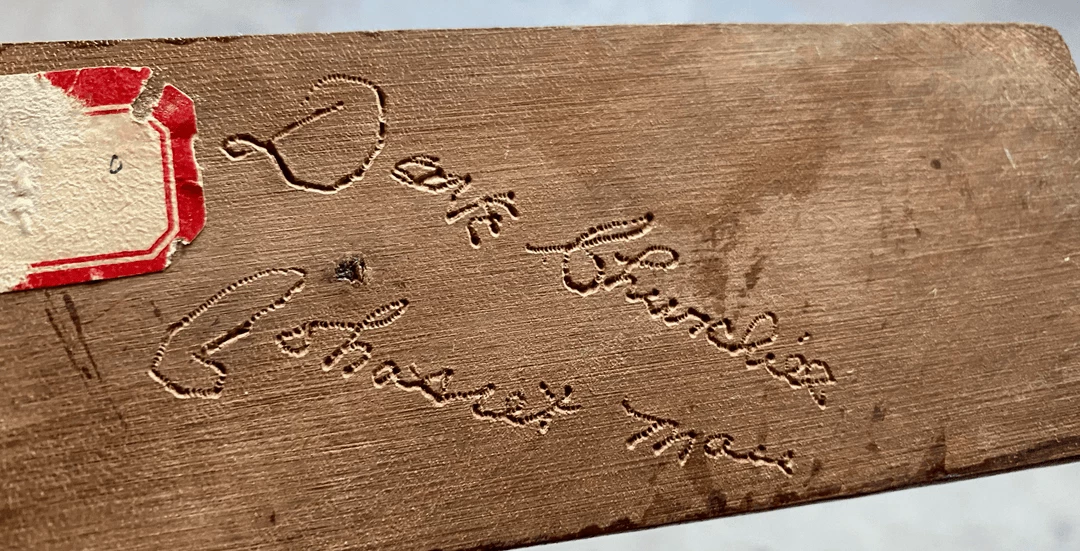 0
Dave Churchill
Cohasset Mass